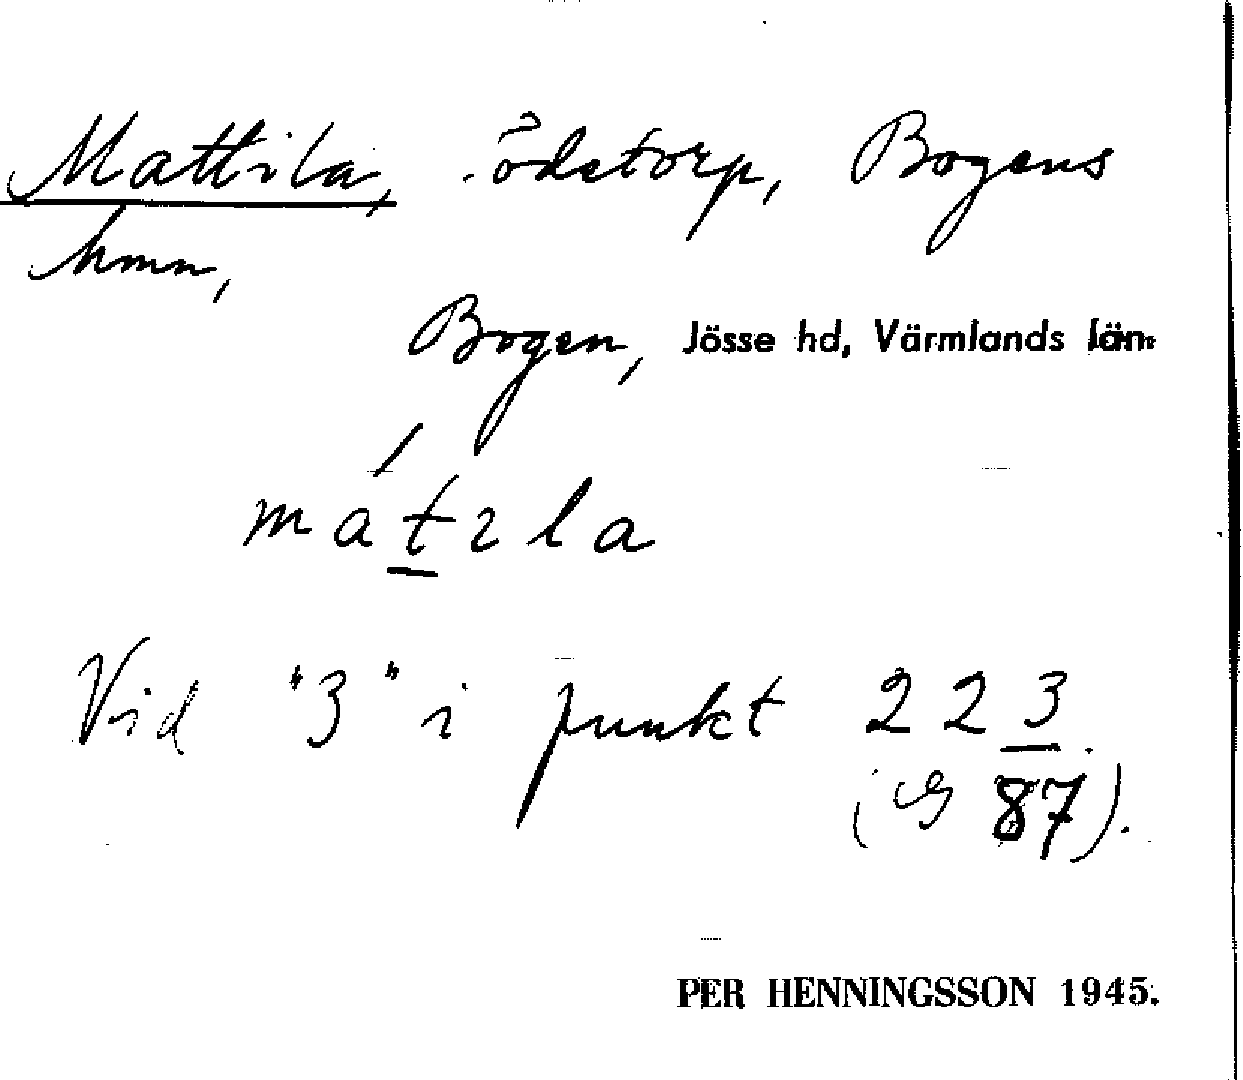 Mattila, ödetorp, Bogens
hmn,
Bogen, Jösse hd, Värmlands län.
mátɩla
Vid "3" i punkt 223.
( 87).
PER HENNINGSSON 1945.